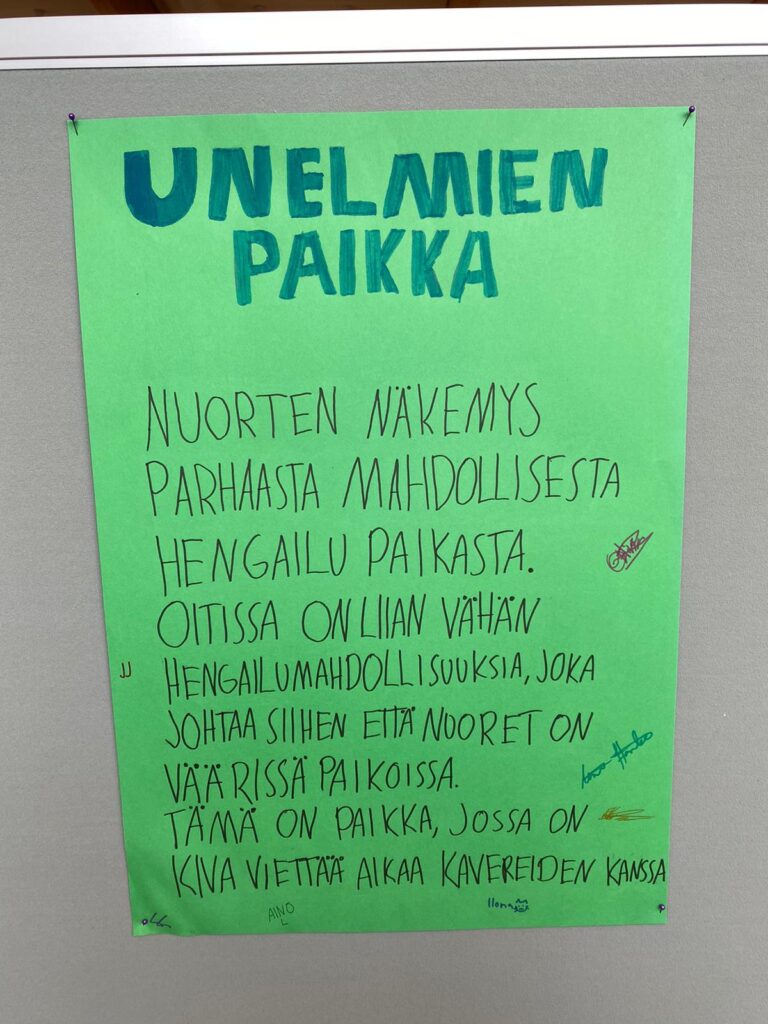 UNELMIEN
PAIKKA
NUORTEN NÄKEMYS
PARHAASTA MAHDOLLISESTA
HENGAILU PAIKASTA.
OITISSA ON LIIAN VÄHÄN
HENGAILUMAHDOLLISUUKSIA, JOKA
JJ
JOHTAA SIIHEN ETTÄ NUORET ON
VÄÄRISSÄ PAIKOISSA.
TÄMÄ ON PAIKKA, JOSSA ON
KIVA VIETTÄÄ AIKAA KAVEREIDEN KANSSA
AINO
L
Ilona